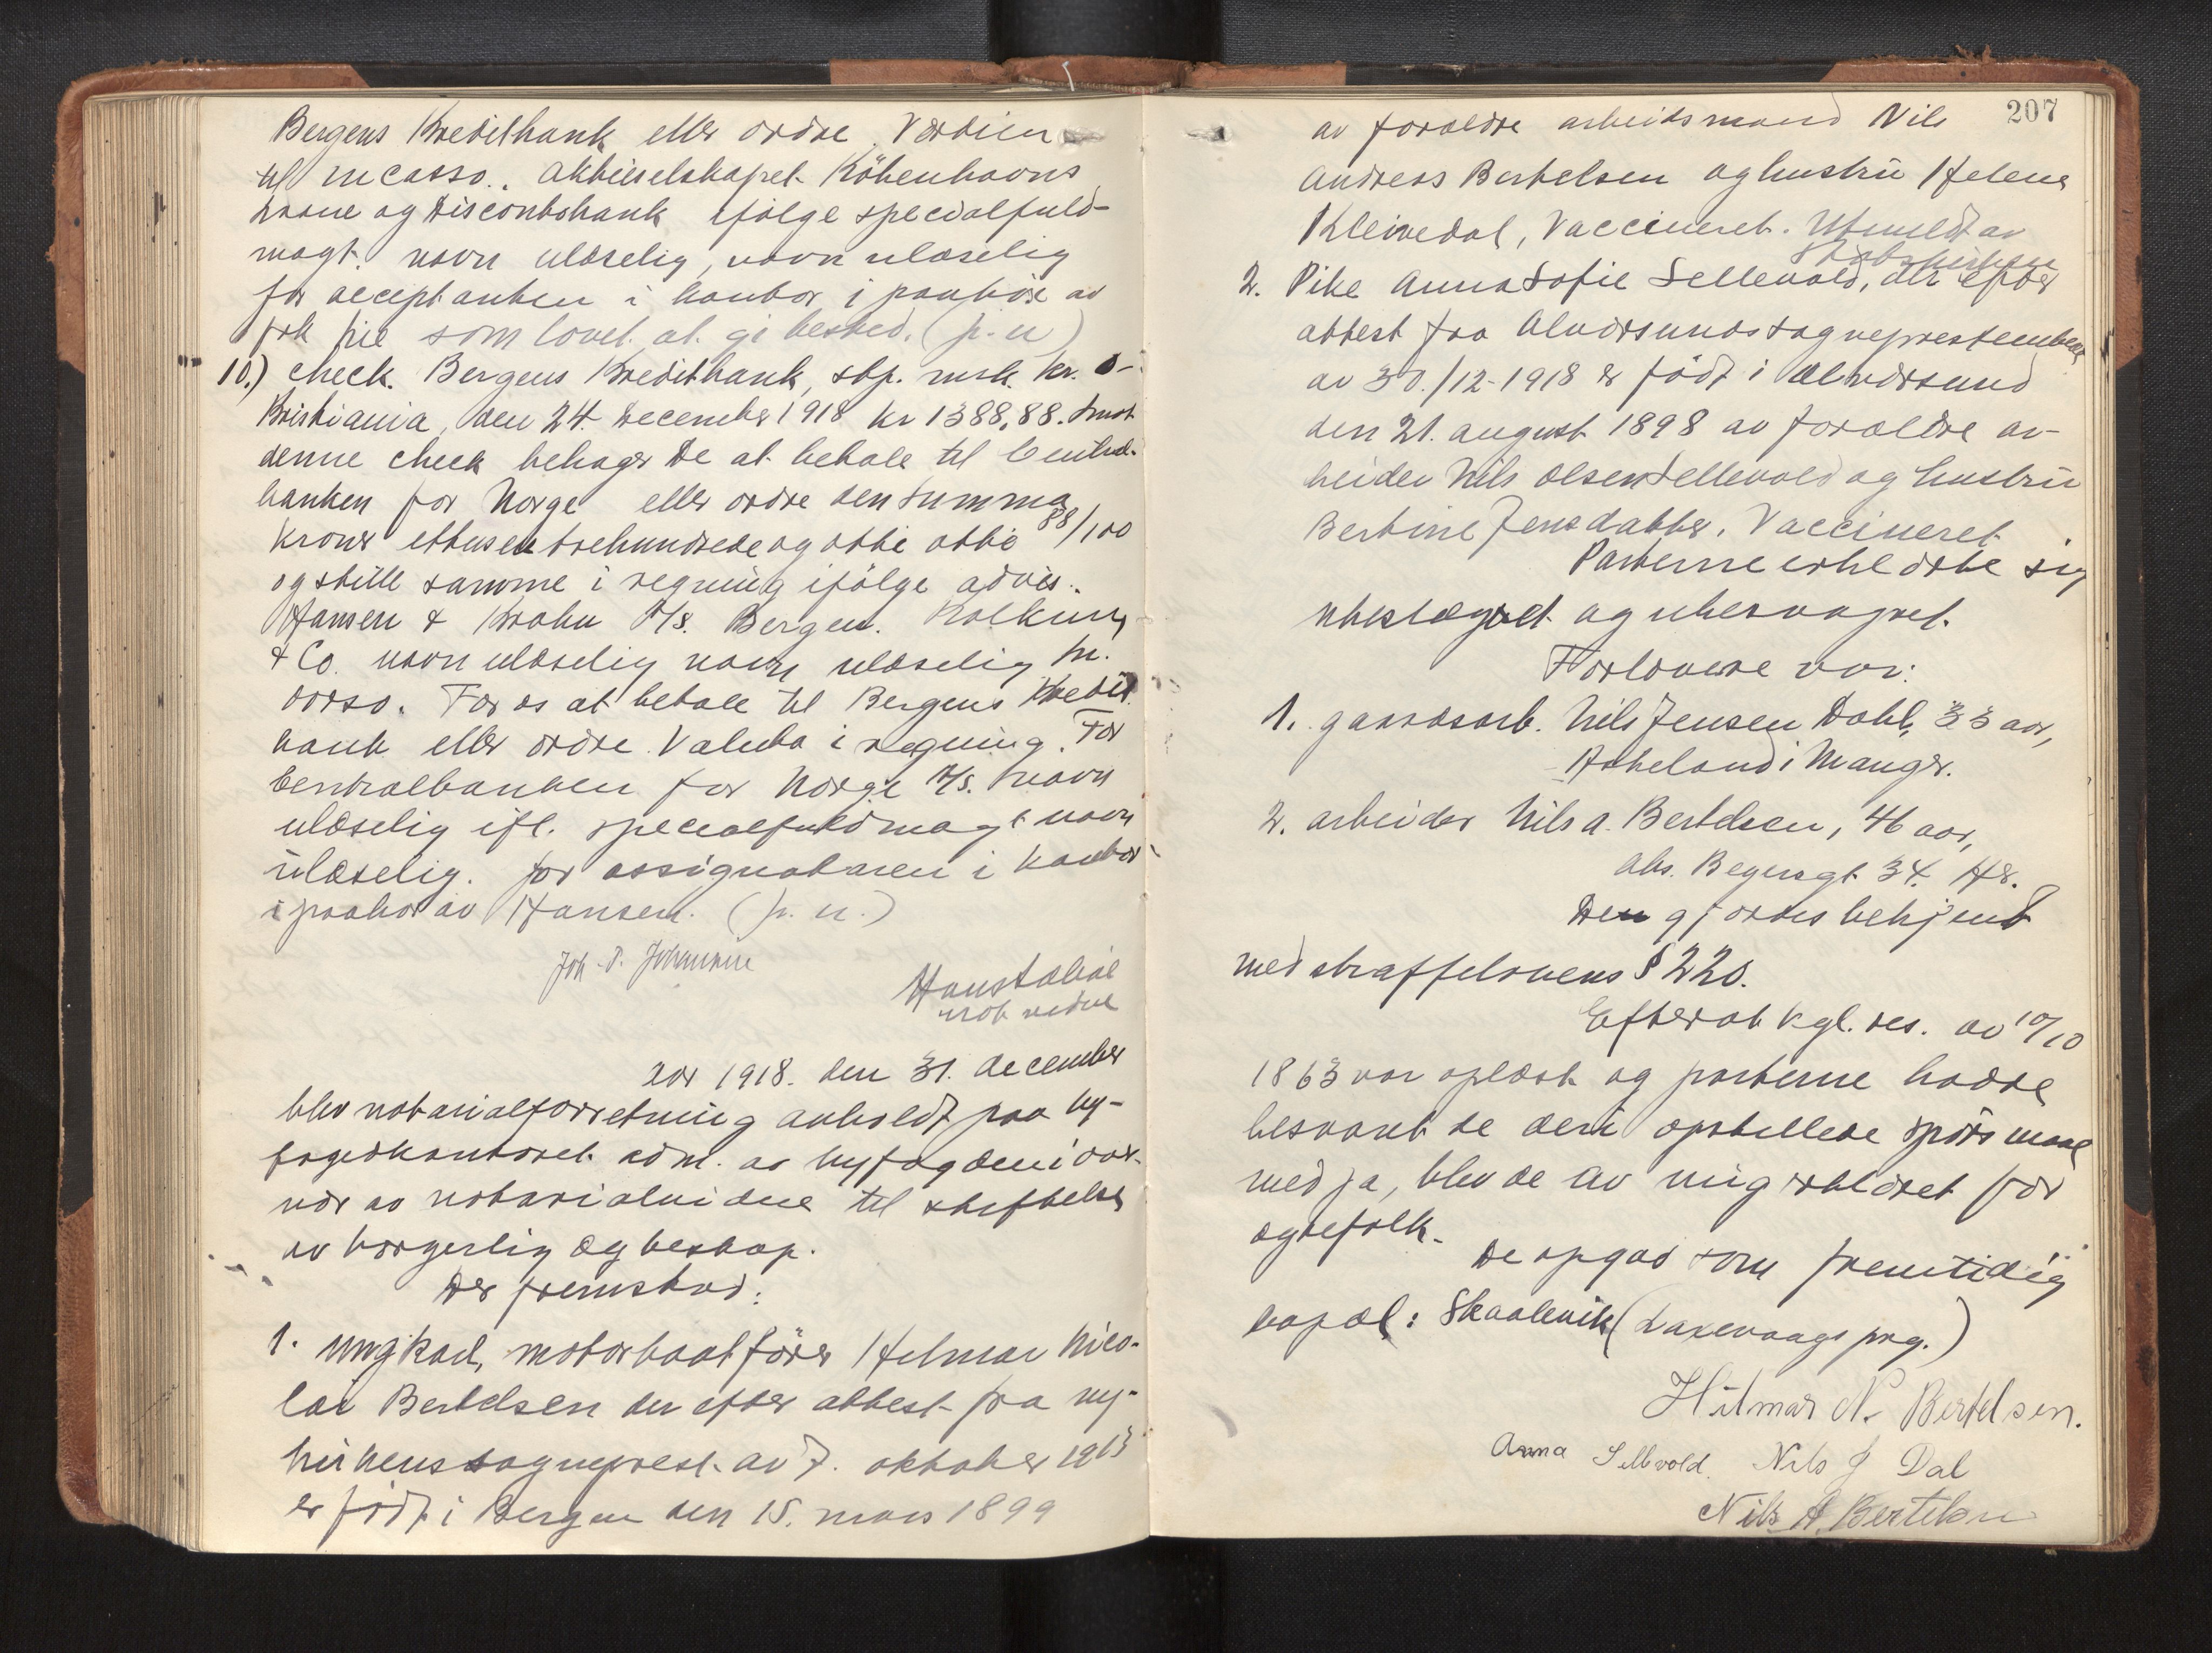 Bergens Kreditbank eller ordre. Værdien
til incasso. Aktieselskapet Københavns
Laane og Discontobank ifølge specialfuld-
magt. navn ulæselig, navn ulæselig
for acceptanten i kontor i paahør av
frk som lovet at gi besked. (p. u)
10.) Check. Bergens Kreditbank, stp. mrk. kr. 0-
Kristiania, den 24. December 1918 kr 1388,88. Mot
denne check behager De at betale til Central-
banken for Norge eller ordre den summa
kroner ettusen trehundrede og otti otte 88/100
og stille samme i regning ifølge advis.
Hansen & Krohn A/S. Bergen.
& Co. navn ulæselig navn ulæselig In
dorso. For os at betale til Bergens Kredit
bank eller ordre. Valuta i regning. For
Centralbanken for Norge A/S. navn
ulæselig ifl. specialfuldmagt navn
ulæselig. for assignataren i kontor
i paahør av Hansen. (p. u.)
Joh. P. Johannesen
not. vidne
Aar 1918. den 31. december
blev notarialforretning avholdt paa by-
fogedkontoret adm. av byfogden i over-
vær av notarialvidne til stiftelse
av borgerlig egteskap.
Der fremstod:
1. Ungkarl, motorbaatfører Hilmar Nico-
lai Bertelsen der efter attest fra ny-
kirkens sogneprest av 7. oktober 1913
er født i Bergen den 15. mars 1899
207
av forældre arbeidsmand Nils
Andreas Bertelsen og hustru Helene
Kleivedal, Vaccineret. Utmeldt av
Statskirken
2. Pike Anna Sofie Sellevold, der efter
attest fra Alversunds sogneprestembede
av 30./12-1918 er født i Alversund
den 21. august 1898 av forældre ar-
beider Nils Olsen Sellevold og hustru
Bertine Jensdatter. Vaccineret
Parterne erklærte sig
ubeslegtet og ubesvogret.
Forlovere var:
1. gaardsarb. Nils Jensen Dahl, 33 aar,
Askeland i Manger.
2. arbeider Nils A. Bertelsen, 46 aar,
Abs. Begersgt 34. H8.
De gjordes bekjent
med straffelovens § 220.
Efterat kgl. res. av 10/10
1863 var oplæst og parterne hadde
besvart de deri opstillede spørsmaal
med ja, blev de av mig erklæret for
egtefolk.
De opgav som fremtidig
bopæl: Skaalevik (Laxevaags prg.)
Hilmar N. Bertelsen.
Anna Sellevold. Nils J Dal
Nils A. Bertelsen